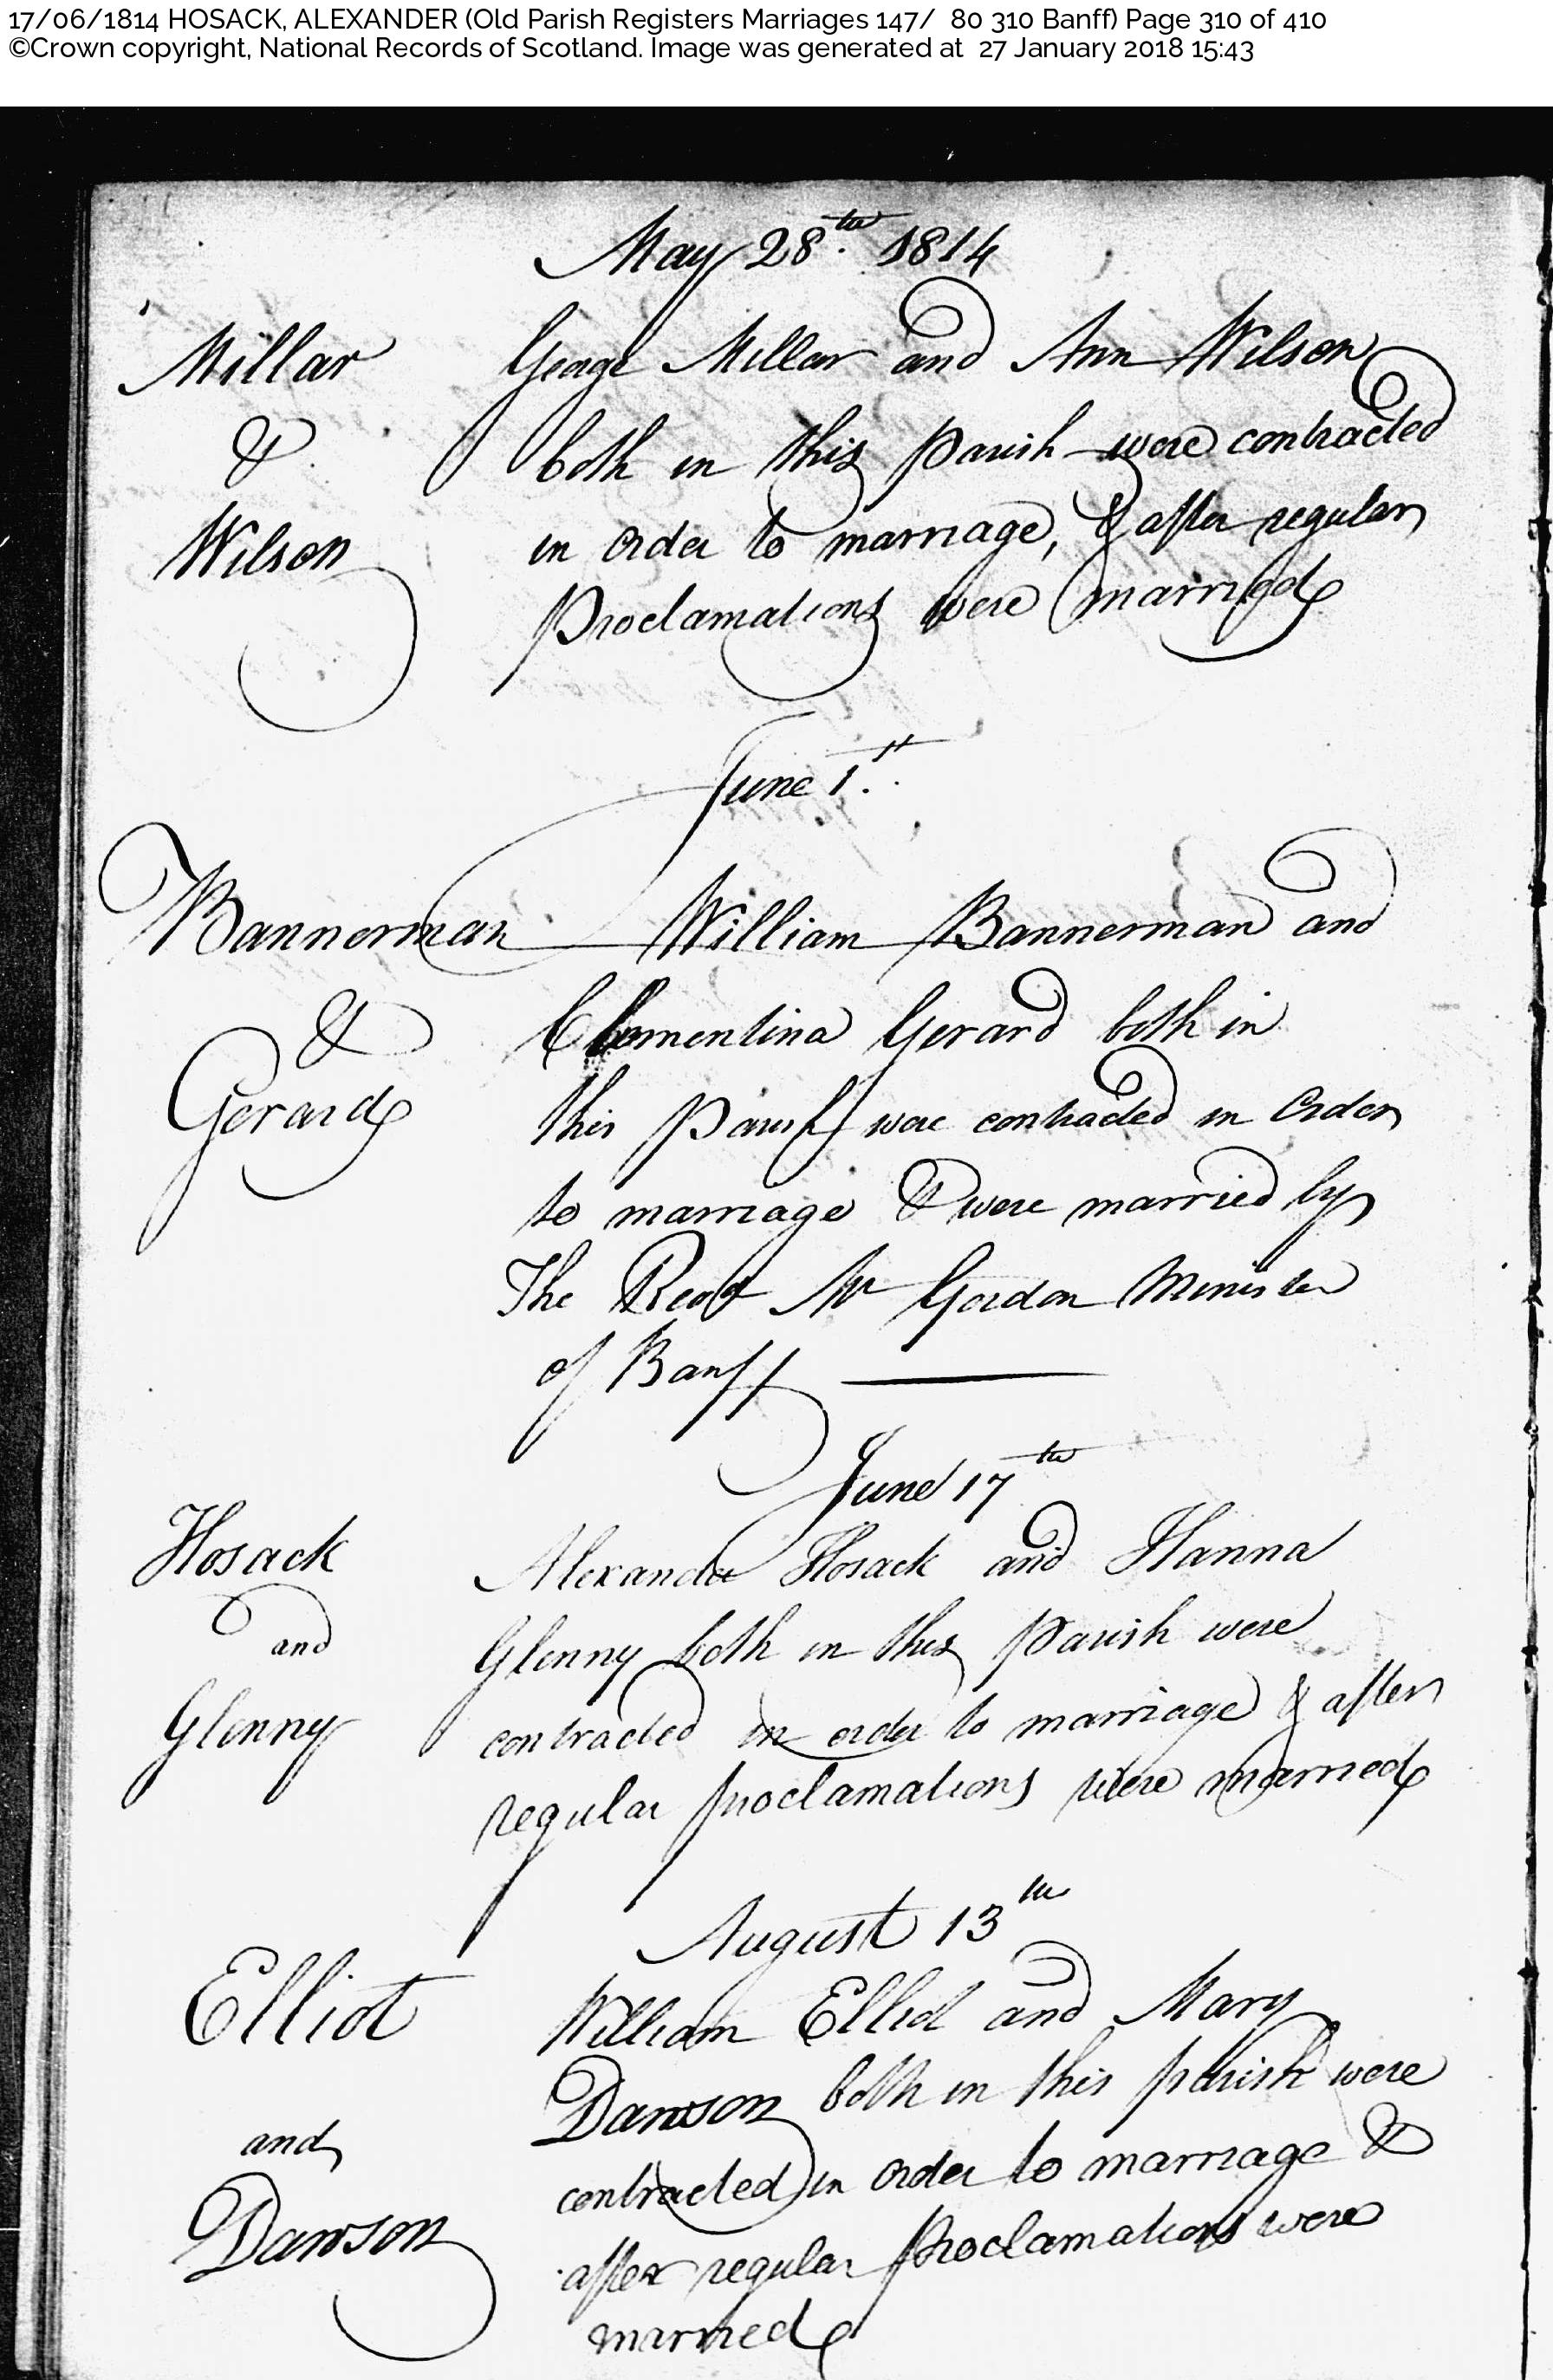 17/06/1814 HOSACK, ALEXANDER (Old Parish Registers Marriages 147/ 80 310 Banff) Page 310 of 410
©Crown copyright, National Records of Scotland. Image was generated at 27 January 2018 15:43
May 28th. 1814
Millar
&
Wilson
George Millar and Ann Wilson
both in this Parish were contracted
in order to marriage, & after regular
Proclamations were married
June 1st.
Bannerman
&
Gerard
William Bannerman and
Clementina Gerard both in
this Parish were contracted in Order
to marriage & were married by
The Revd Mr Gordon Minister
of Banff
June 17th
Hosack
and
Glenny
Alexander Hosack and Hanna
Glenny both in this Parish were
contracted in order to marriage & after
regular proclamations were married
August 13th
Elliot
and
Dawson
William Elliot and Mary
Dawson both in this parish were
contracted in order to marriage &
after regular Proclamations were
married